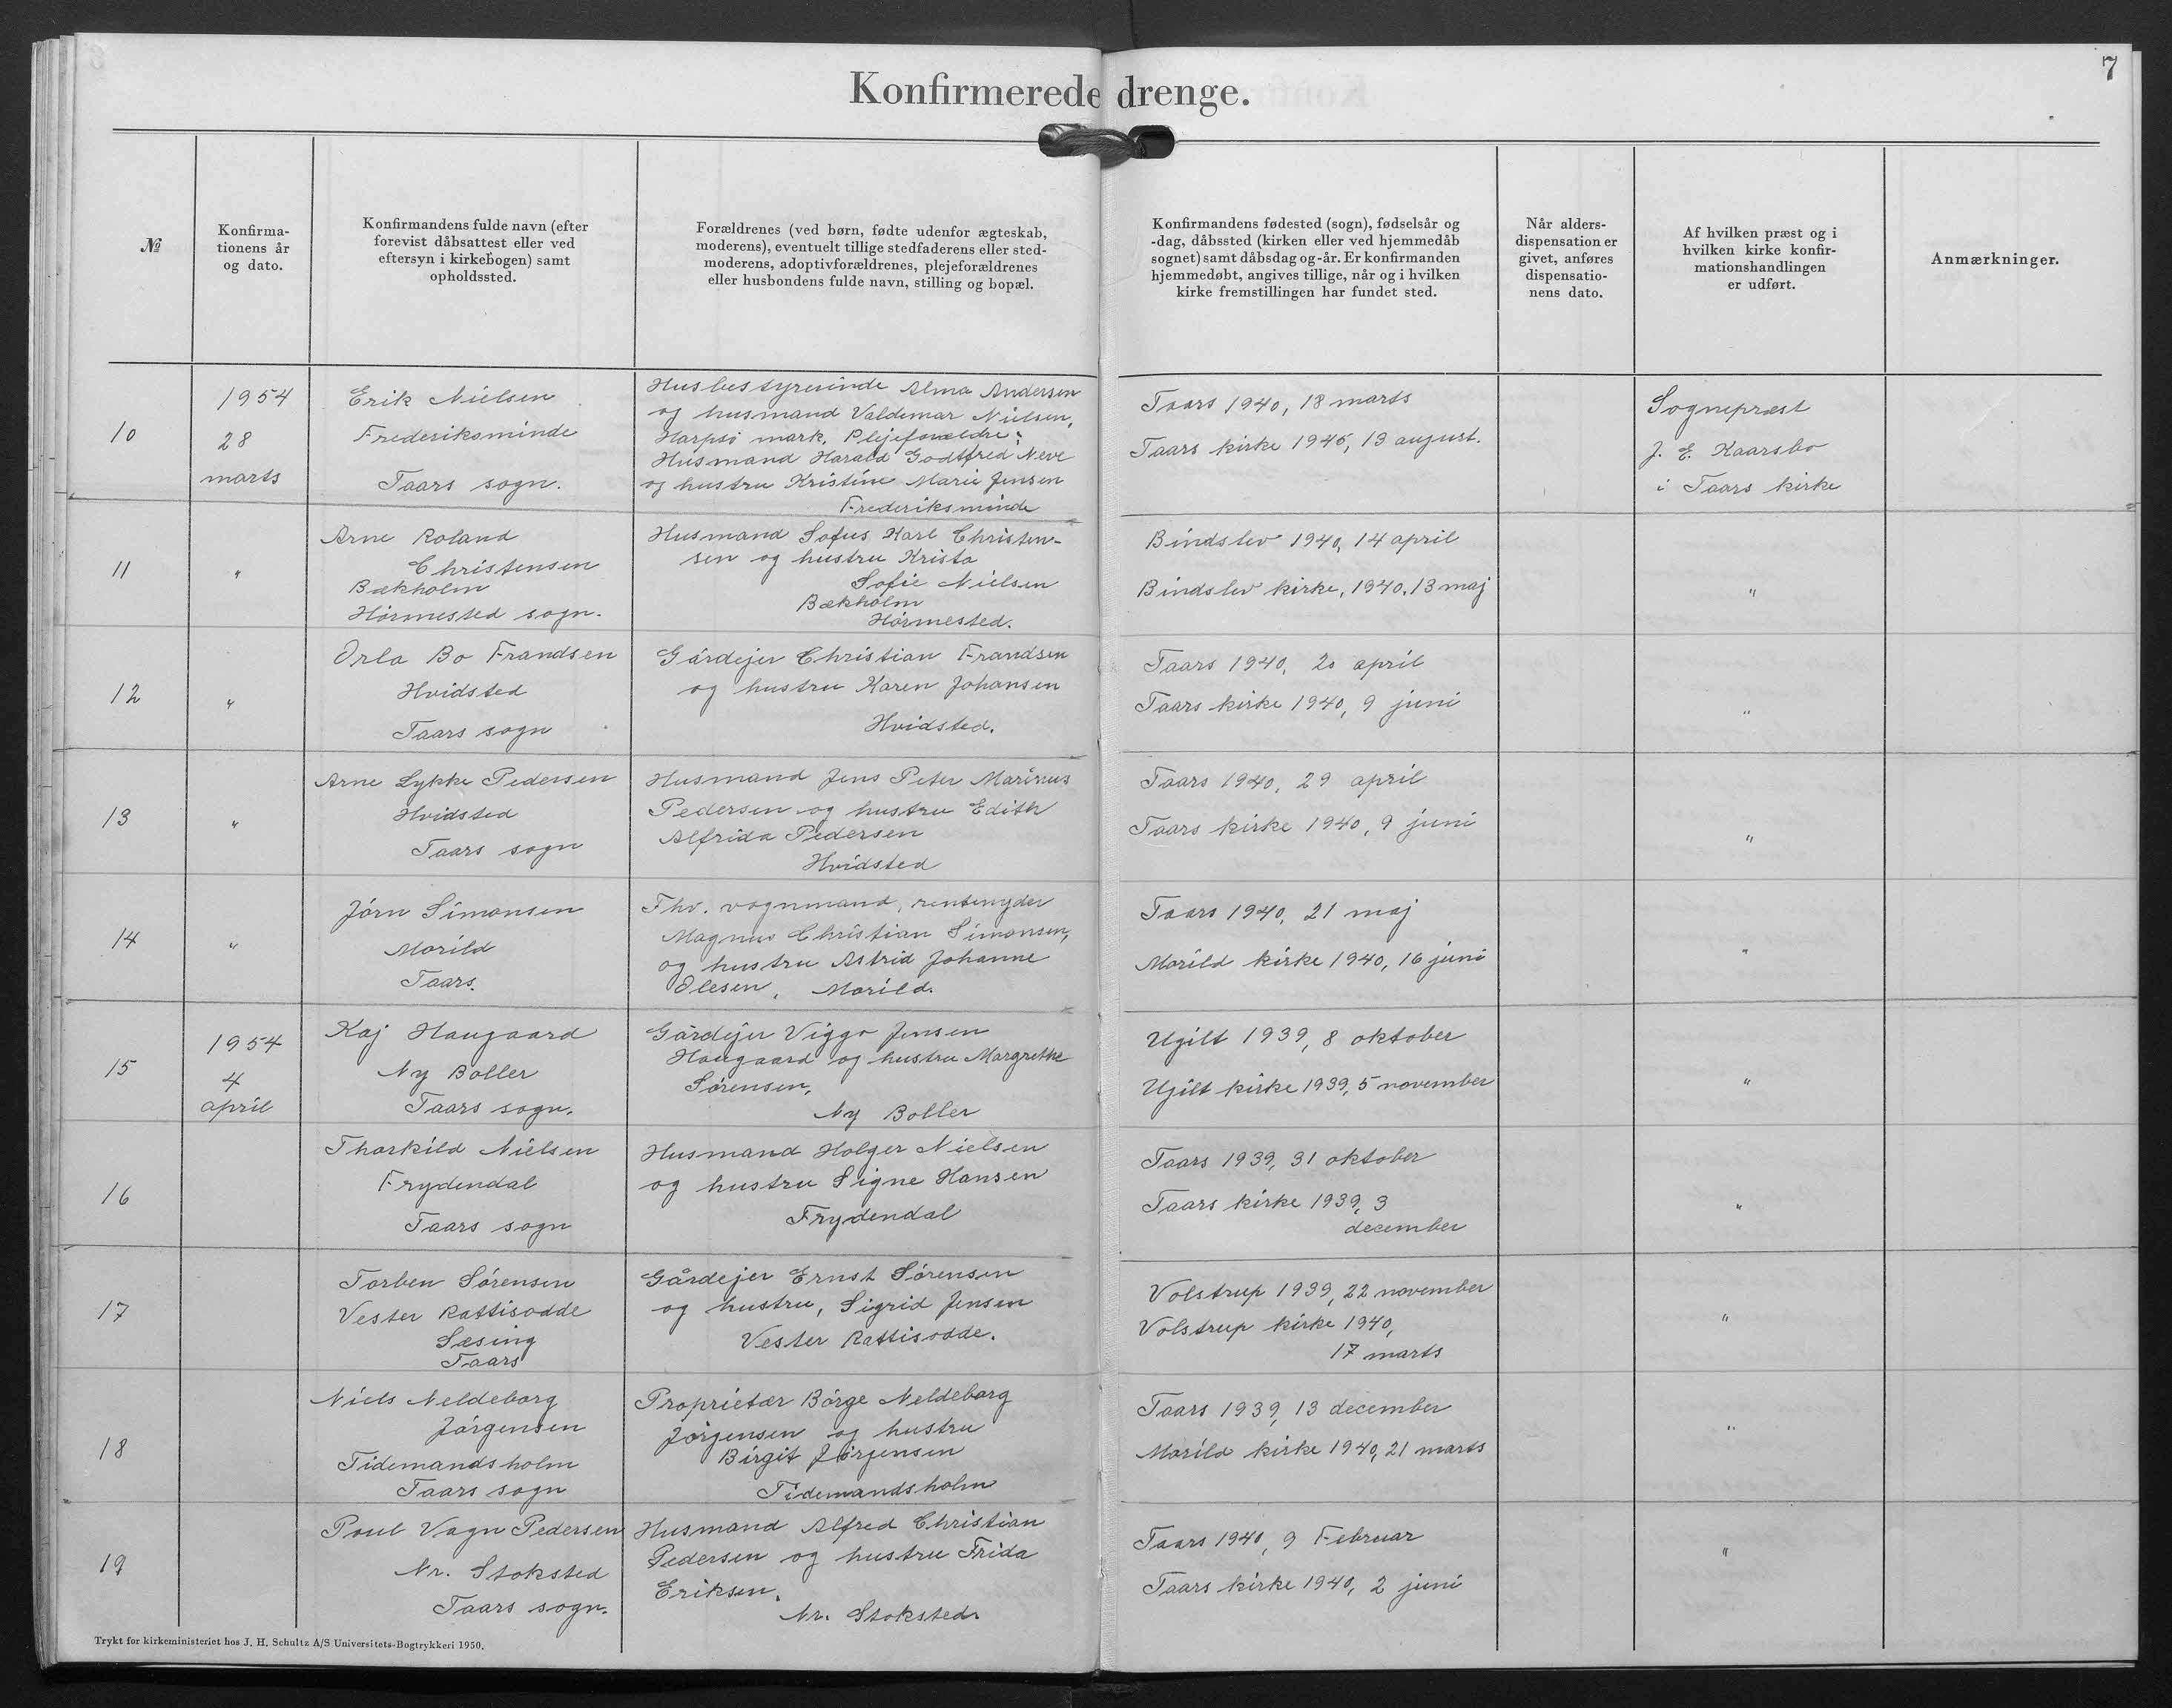 7
Konfirmerede drenge.
№
Konfirma-
tionens år
og dato.
Konfirmandens fulde navn (efter
forevist dåbsattest eller ved
eftersyn i kirkebogen) samt
opholdssted.
Forældrenes (ved børn, fødte udenfor ægteskab,
moderens), eventuelt tillige stedfaderens eller sted-
moderens, adoptivforældrenes, plejeforældrenes
eller husbondens fulde navn, stilling og bopæl.
Konfirmandens fødested (sogn), fødselsår og
-dag, dåbssted (kirken eller ved hjemmedåb
sognet) samt dåbsdag og -år. Er konfirmanden
hjemmedøbt, angives tillige, når og i hvilken
kirke fremstillingen har fundet sted.
Når alders-
dispensation er
givet, anføres
dispensatio-
nens dato.
Af hvilken præst og i
hvilken kirke konfir-
mationshandlingen
er udført.
Anmærkninger.
10
1954
28
marts
Erik Nielsen
Frederiksminde
Taars sogn.
Husbestyrerinde Alma Andersen
og husmand Valdemar Nielsen,
Harpsö mark. Plejeforældre:
Husmand Harald Godtfred Neve
og hustru Kristine Marie Jensen
Frederiksminde
Taars 1940, 18 marts
Taars kirke 1945, 13 august.
Sognepræst
J. E. Kaarsbo
i Taars kirke
11
"
Arne Roland
Christensen
Bækholm
Hörmested sogn.
Husmand Sofus Karl Christen-
sen og hustru Krista
Sofie Nielsen
Bækholm
Hörmested.
Bindslev 1940, 14 april
Bindslev kirke, 1940, 13 maj
"
12
"
Orla Bo Frandsen
Hvidsted
Taars sogn
Gårdejer Christian Frandsen
og hustru Karen Johansen
Hvidsted.
Taars 1940, 20 april
Taars kirke 1940, 9 juni
"
13
"
Arne Lykke Pedersen
Hvidsted
Taars sogn
Husmand Jens Peter Marinus
Pedersen og hustru Edith
Alfrida Pedersen
Hvidsted
Taars 1940, 29 april
Taars kirke 1940, 9 juni
"
14
"
Jörn Simonsen
Morild
Taars.
Fhv. vognmand, rentenyder
Magnus Christian Simonsen,
og hustru Astrid Johanne
Olesen, Morild.
Taars 1940, 21 maj
Morild kirke 1940, 16 juni
"
15
1954
4
april
Kaj Haugaard
Ny Boller
Taars sogn.
Gårdejer Viggo Jensen
Haugaard og hustru Margrethe
Sörensen,
Ny Boller
Ugilt 1939, 8 oktober
Ugilt kirke 1939, 5 november
"
16
Thorkild Nielsen
Frydendal
Taars sogn
Husmand Holger Nielsen
og hustru Signe Hansen
Frydendal
Taars 1939, 31 oktober
Taars kirke 1939, 3
december
"
17
Torben Sörensen
Vester Rattisodde
Sæsing
Taars
Gårdejer Ernst Sörensen
og hustru, Sigrid Jensen
Vester Rattisodde.
Volstrup 1939, 22 november
Volstrup kirke 1940,
17 marts
"
18
Niels Neldeborg
Jörgensen
Tidemandsholm
Taars sogn
Proprietær Börge Neldeborg
Jörgensen og hustru
Birgit Jörgensen
Tidemandsholm
Taars 1939, 13 december
Morild kirke 1940, 21 marts
"
19
Poul Vagn Pedersen
Nr. Stoksted
Taars sogn.
Husmand Alfred Christian
Pedersen og hustru Frida
Eriksen.
Nr. Stoksted.
Taars 1940, 9 Februar
Taars kirke 1940, 2 juni
"
Trykt for kirkeministeriet hos J. H. Schultz A/S Universitets-Bogtrykkeri 1950.